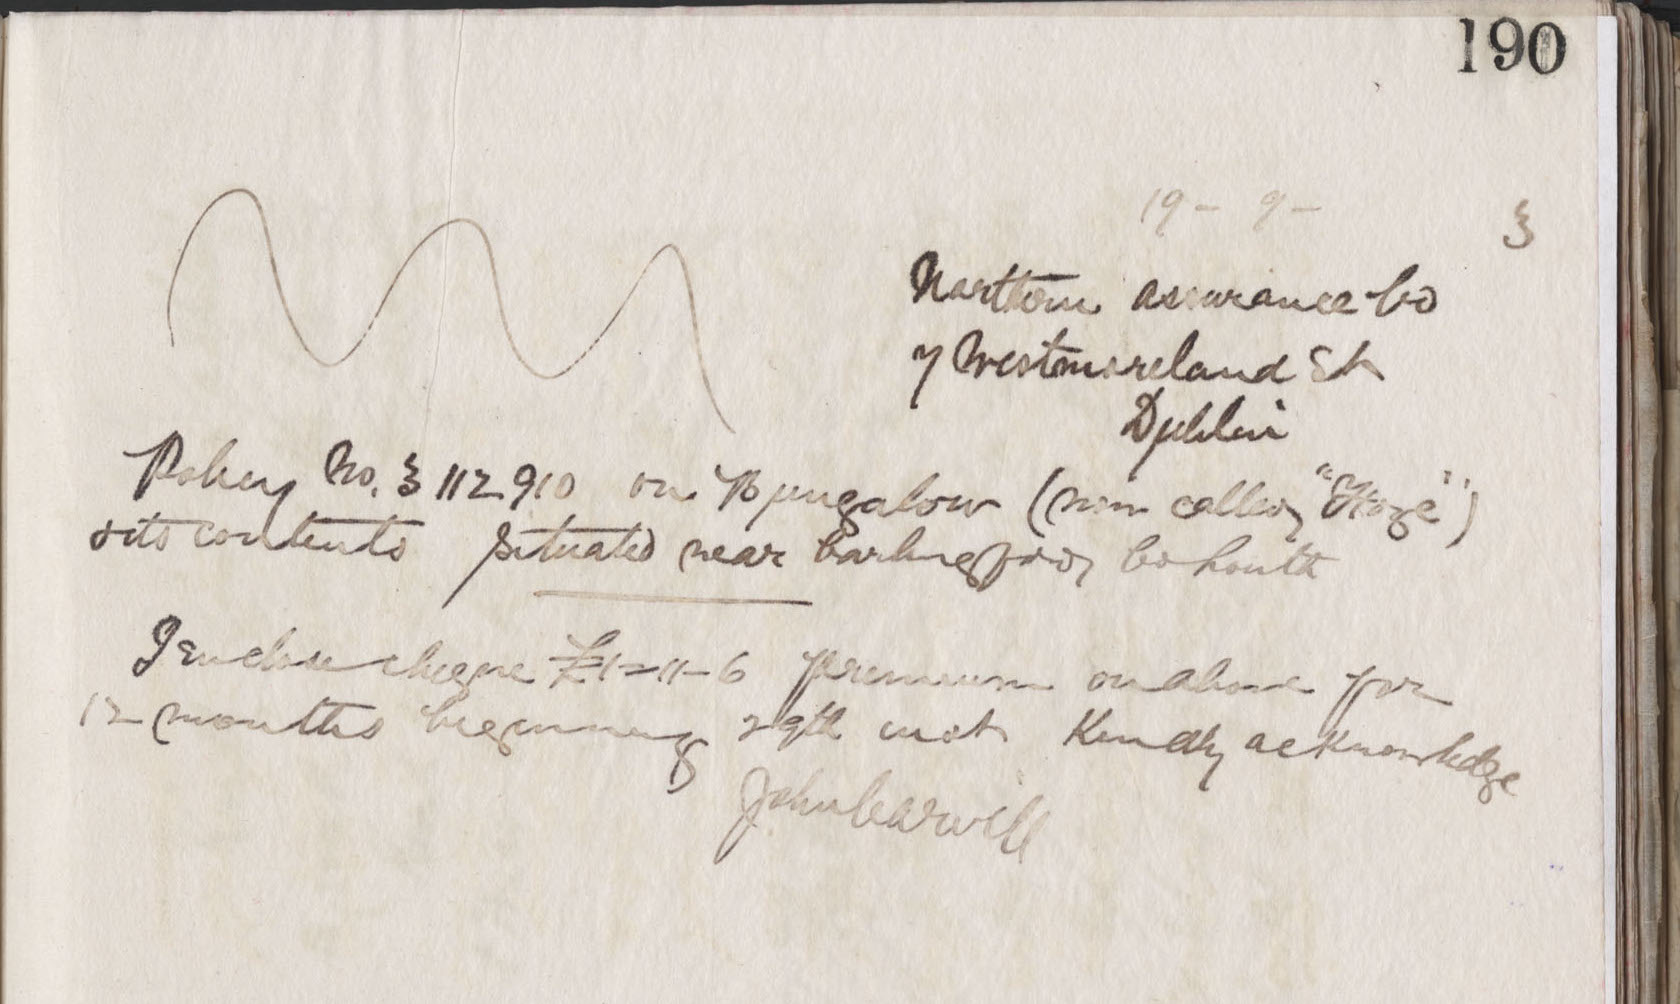 190
19 - 9 - 3
Northern Assurance Co
7 Westmoreland St
Dublin
Policy No. 3 112910 on Bungalow (now called "")
& its contents situated near Carlingford Co Louth
I enclose cheque £1-11-6 premium on above for
12 months beginning 29th inst Kindly acknowledge